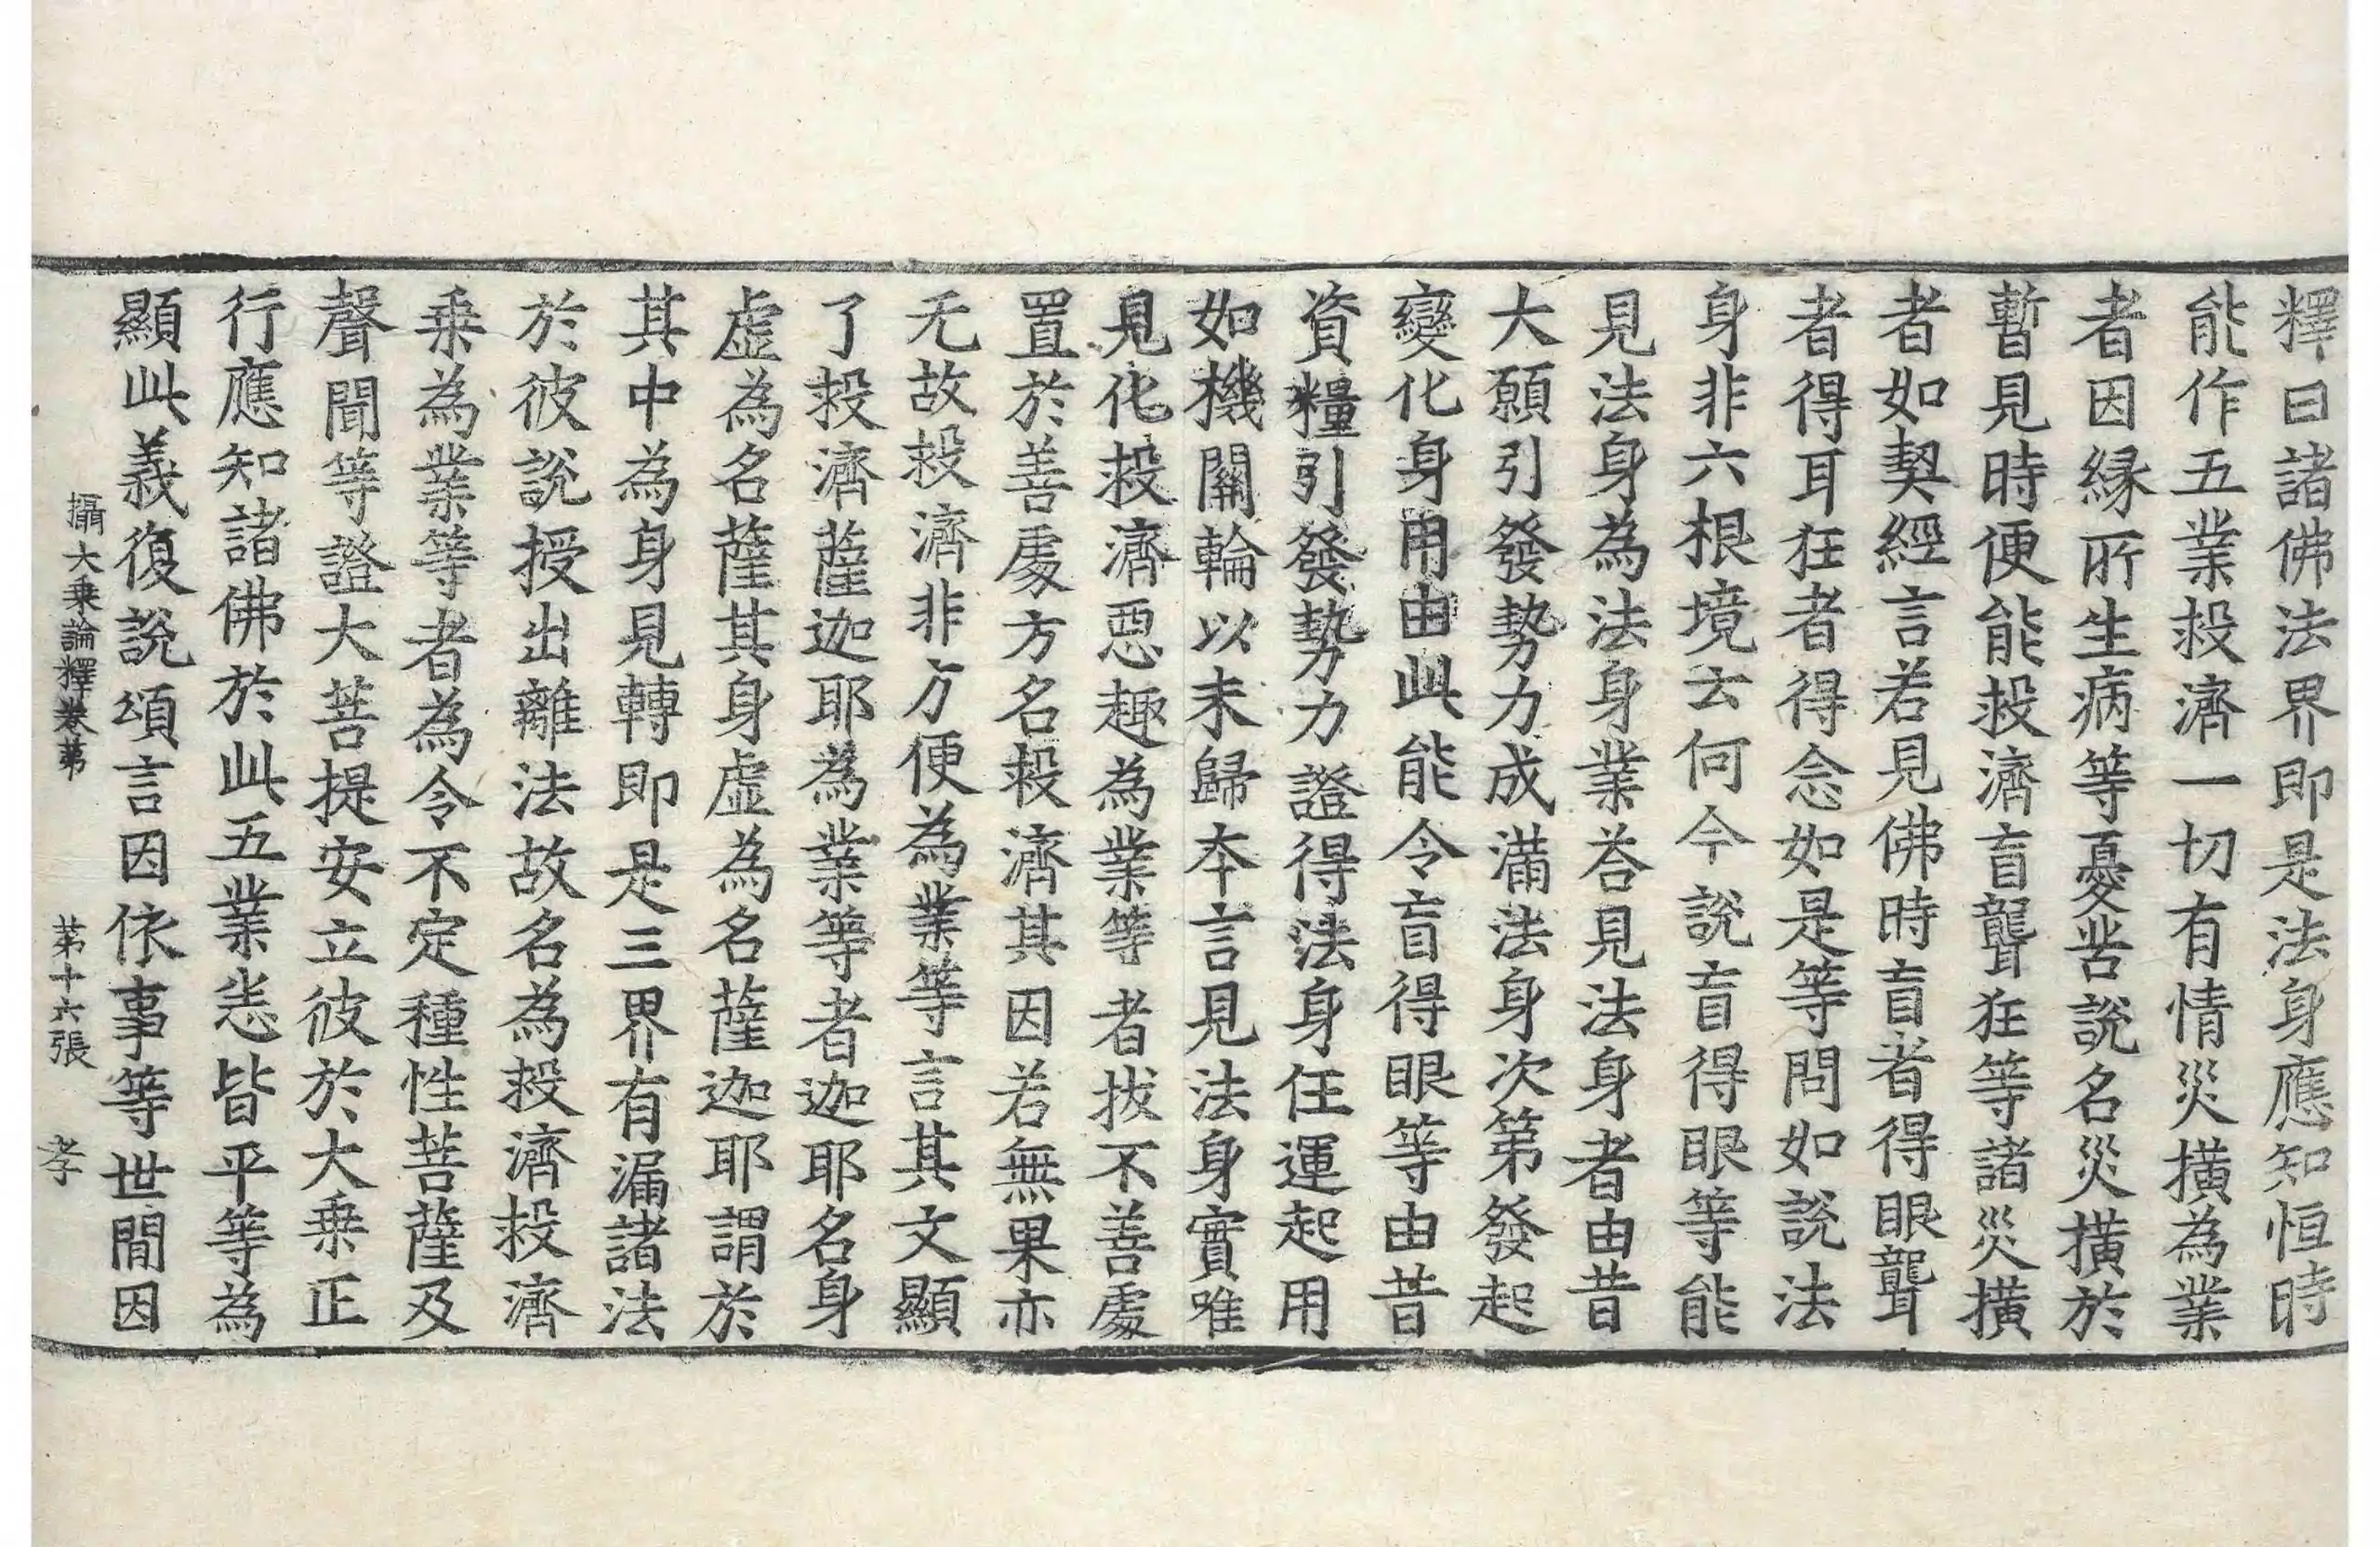 釋曰諸佛法界即是法身應知恒時
能作五業救濟一切有情災橫為業
者因緣所生病等憂苦說名災橫於
暫見時便能救濟盲聾狂等諸災橫
者如契經言若見佛時盲者得眼聾
者得耳狂者得念如是等問如說法
身非六根境云何今說盲得眼等能
見法身為法身業荅見法身者由昔
大願引發勢力成滿法身次第發起
變化身用由此能令盲得眼等由昔
資糧引發勢力證得法身任運起用
如機關輪以末歸本言見法身實唯
見化救濟惡趣為業等者拔不善處
置於善處方名救濟其因若無果亦
无故救濟非方便為業等言其文顯
了救濟薩迦耶為業等者迦耶名身
虛為名薩其身虛為名薩迦耶謂於
其中為身見轉即是三界有漏諸法
於彼說授出離法故名為救濟救濟
乘為業等者為令不定種性菩薩及
聲聞等證大菩提安立彼於大乘正
行應知諸佛於此五業恙皆平等為
顯此義復說頌言因依事等世間因
攝大乘論釋卷苐　苐十六張　孝